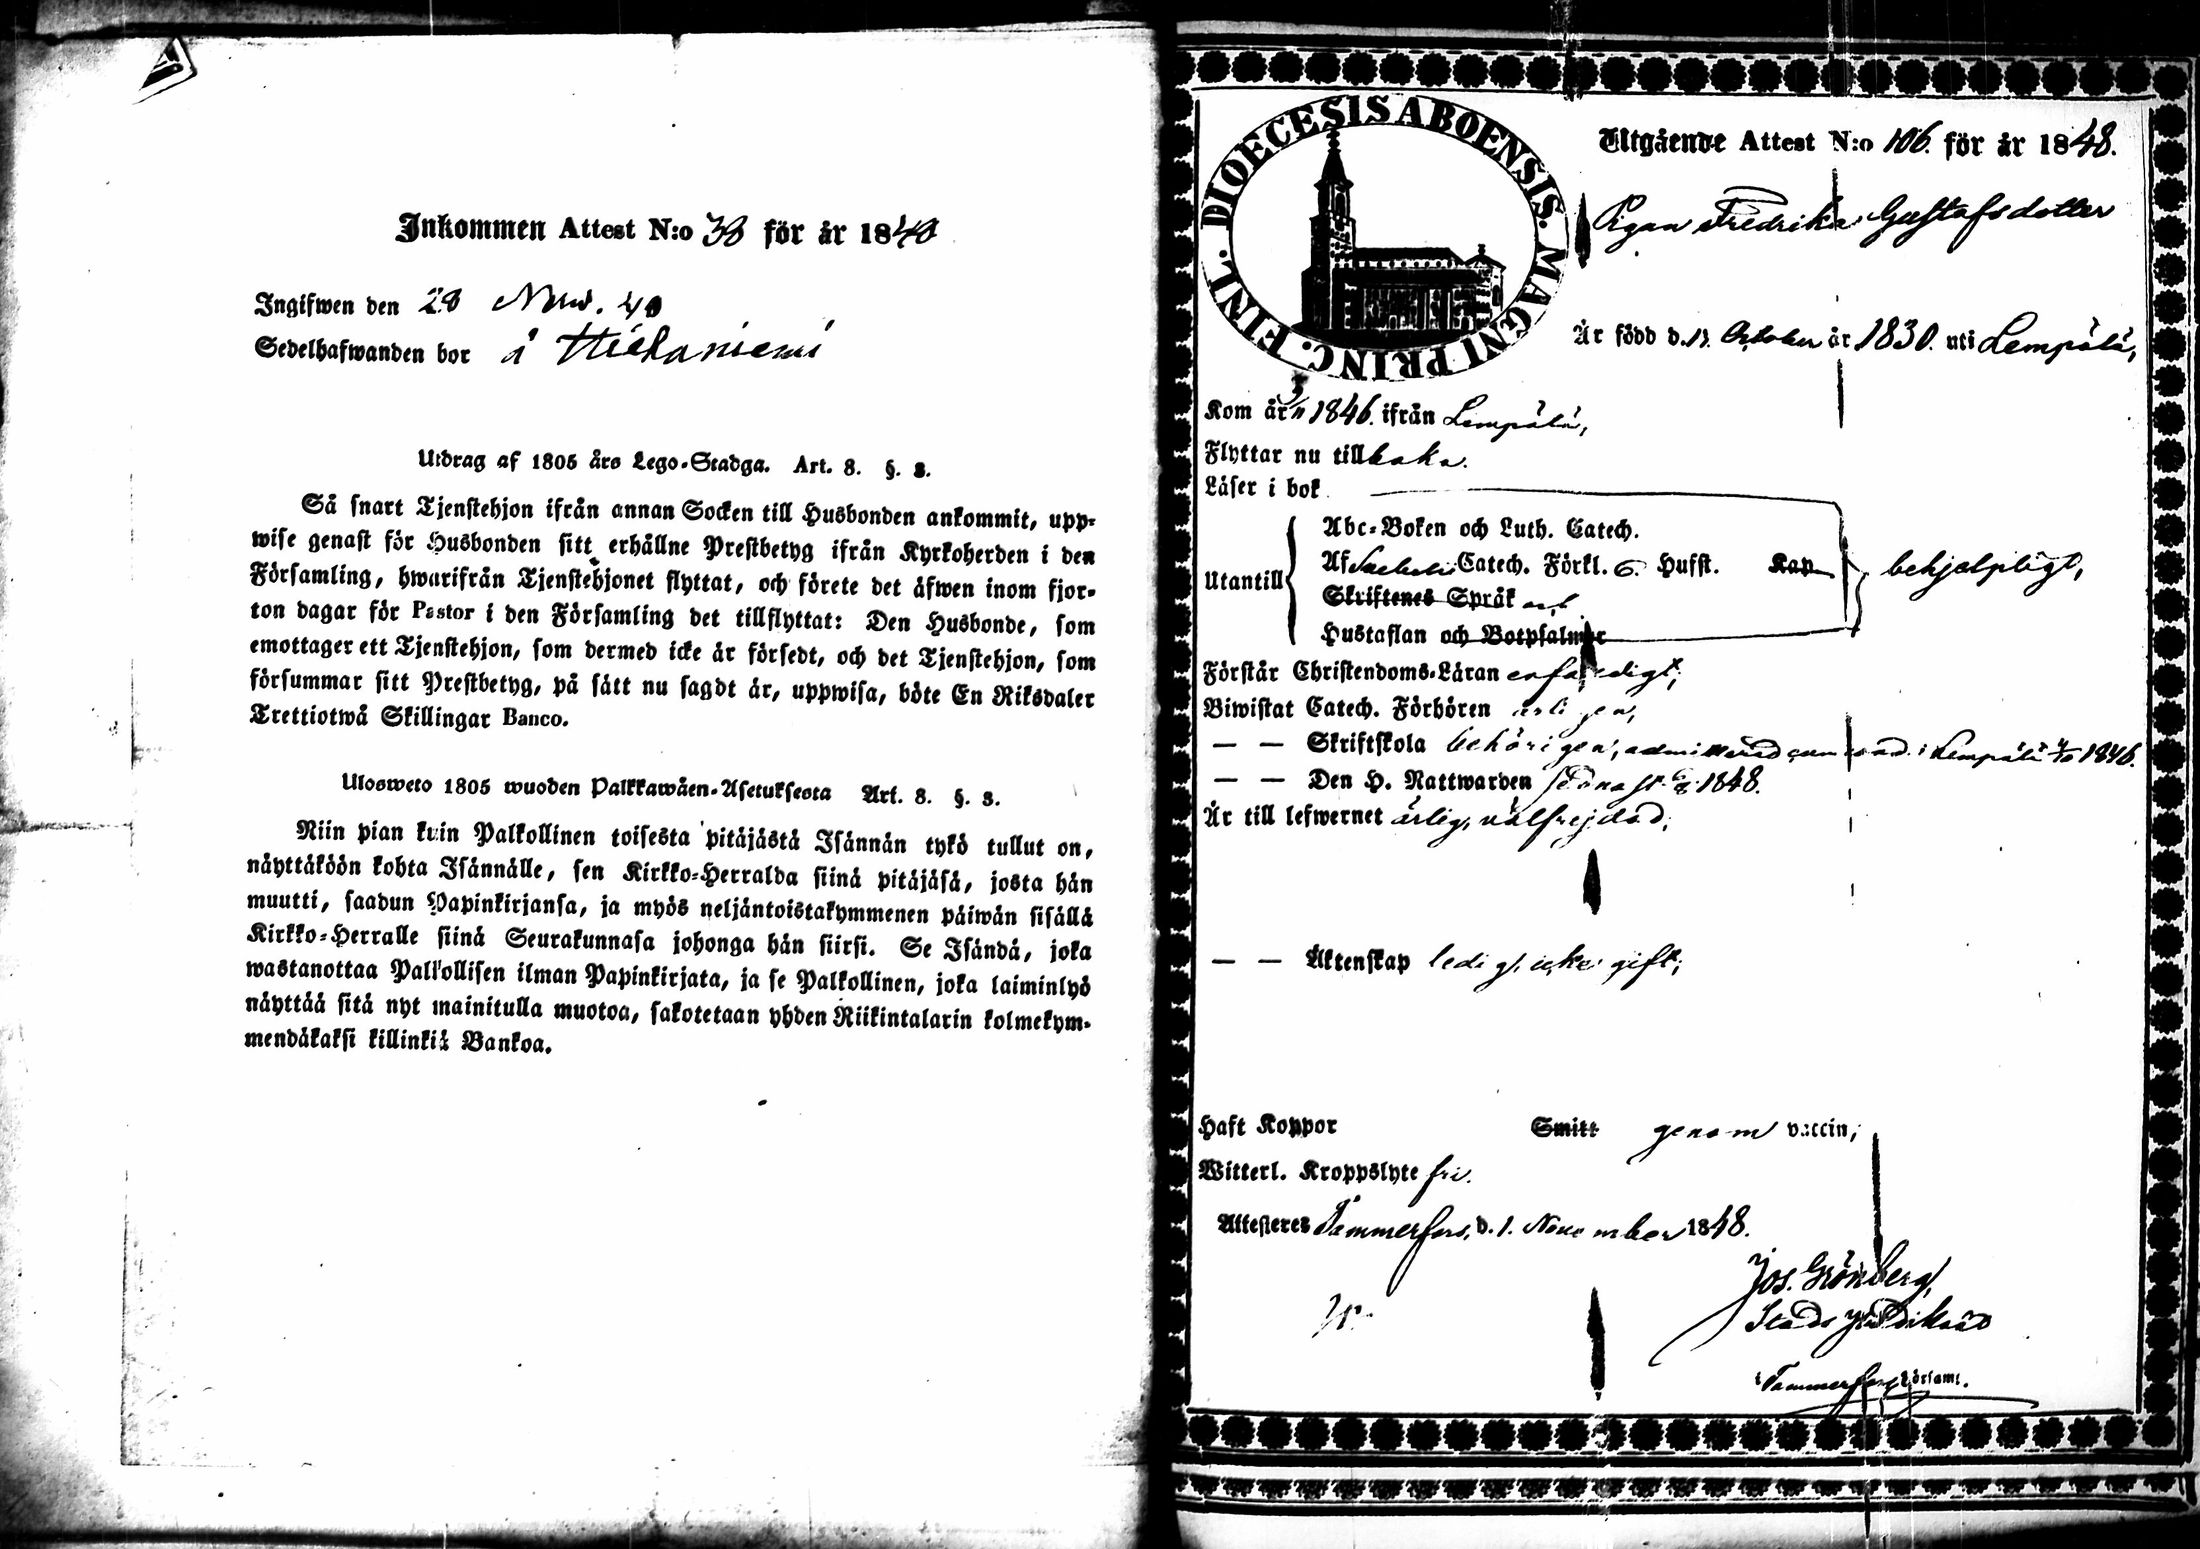 Inkommen Attest N:o 38 för år 1848
Ingifwen den 28 Nov. 48
Sedelhafwanden bor å Hiekaniemi
Utdrag af 1805 års Lego-Stadga. Art. 8. §. 3.
Så snart Tjenstehjon ifrån annan Socken till Husbonden ankommit, upp-
wise genast för Husbonden sitt erhållne Prestbetyg ifrån Kyrkoherden i den
Församling, hwarifrån Tjenstehjonet flyttat, och förete det äfwen inom fjor-
ton dagar för Pastor i den Församling det tillflyttat: Den Husbonde, som
emottager ett Tjenstehjon, som dermed icke är försedt, och det Tjenstehjon, som
försummar sitt Prestbetyg, på sätt nu sagdt är, uppwisa, böte En Riksdaler
Trettiotwå Skillingar Banco.
Ulosweto 1805 wuoden Palkkawäen-Asetuksesta Art. 8. §. 3.
Niin pian kuin Palkollinen toisesta pitäjästä Isännän tykö tullut on,
näyttäköön kohta Isännälle, sen Kirkko-Herralda siinä pitäjäsä, josta hän
muutti, saadun Papinkirjansa, ja myös neljäntoistakymmenen päiwän sisällä
Kirkko-Herralle siinä Seurakunnasa johonga hän siirsi. Se Isändä, joka
wastanottaa Palkollisen ilman Papinkirjata, ja se Palkollinen, joka laiminlyö
näyttää sitä nyt mainitulla muotoa, sakotetaan yhden Riikintalarin kolmekym-
mendäkaksi killinkiä Bankoa.
DIOECESIS ABOENSIS. MAGNI PRINC. FINL.
Utgående Attest N:o 106. för år 1848.
Pigan Fredrika Gustafsdotter
Är född d. 13. October år 1830. uti Lempälä,
Kom år 1846. ifrån Lempälä,
Flyttar nu tillbaka.
Läser i bok
Utantill
Abc-Boken och Luth. Catech.
Af Catech. Förkl. 6. Hufst. Kap
Skriftenes Språk och
Hustaflan och Botpsalmer
behjelpligt,
Förstår Christendoms-Läran
Biwistat Catech. Förhören årligen,
— — Skriftskola behörigen, admitterad i Lempälä 1846.
— — Den H. Nattwarden sednast 1848.
Är till lefwernet ärlig, välfrejdad,
— — Äktenskap ledig, icke gift;
Haft Koppor Smitt genom vaccin,
Witterl. Kroppslyte fri.
Attesteres Tammerfors, d. 1. November 1848.
Jos. Grönberg,
i Tammerfors Församl.